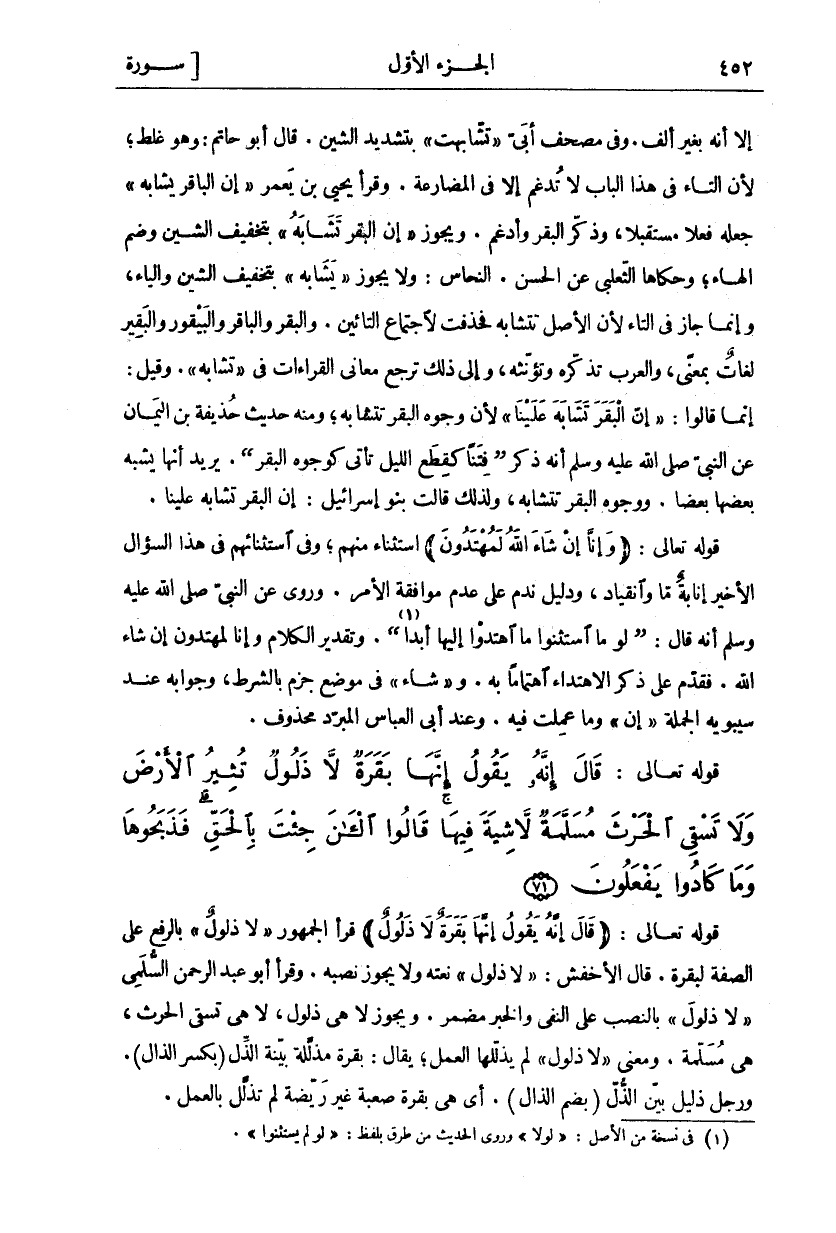 ٤٥٢ الجزء الأول [ سورة
إلا أنه بغير ألف. وفى مصحف أبىّ «تشّابهت» بتشديد الشين . قال أبو حاتم: وهو غلط؛
لأن التاء فى هذا الباب لا تُدغم إلا فى المضارعة . وقرأ يحيى بن يَعمر « إن الباقر يشابه »
جعله فعلا مستقبلا، وذكّر البقر وأدغم . ويجوز « إن البقر تَشَابَهُ » بتخفيف الشين وضم
الهاء؛ وحكاها الثّعلبى عن الحسن . النحاس : ولا يجوز « يَشَابه » بتخفيف الشين والياء،
وإنما جاز فى التاء لأن الأصل تتشابه فحذفت لآجتماع التائين . والبقر والباقر والبَيْقور والبَقِير
لغاتٌ بمعنًى، والعرب تذكّره وتؤنّثه، وإلى ذلك ترجع معانى القراءات فى «تشابه». وقيل :
إنما قالوا : « إِنَّ الْبَقَرَ تَشَابَهَ عَلَيْنَا » لأن وجوه البقر تتشابه؛ ومنه حديث حُذيفة بن اليَمَان
عن النبىّ صلى الله عليه وسلم أنه ذكر ” فِتَنًا كقِطَع الليل تأتى كوجوه البقر “ . يريد أنها يشبه
بعضها بعضا . ووجوه البقر تتشابه، ولذلك قالت بنو إسرائيل : إن البقر تشابه علينا .
قوله تعالى : ﴿وَإِنَّا إِنْ شَاءَ اللهُ لَمُهْتَدُونَ﴾ استثناء منهم؛ وفى آستثنائهم فى هذا السؤال
الأخير إنابةٌ مّا وآنقياد، ودليل ندم على عدم موافقة الأمر . وروى عن النبىّ صلى الله عليه
وسلم أنه قال : ” لو ما آستثنوا ما آهتدوْا إليها أبدا (١) “ . وتقدير الكلام وإنا لمهتدون إن شاء
الله . فقدّم على ذكر الاهتداء آهتمامًا به . و« شاء » فى موضع جزم بالشرط، وجوابه عند
سيبويه الجملة « إن » وما عملت فيه . وعند أبى العباس المبرّد محذوف .
قوله تعالى : قَالَ إِنَّهُۥ يَقُولُ إِنَّهَا بَقَرَةٌ لَّا ذَلُولٌ تُثِيرُ ٱلْأَرْضَ
وَلَا تَسْقِى ٱلْحَرْثَ مُسَلَّمَةٌ لَّا شِيَةَ فِيهَا ۚ قَالُوا ٱلْـَٰٔنَ جِئْتَ بِٱلْحَقِّ ۚ فَذَبَحُوهَا
وَمَا كَادُوا يَفْعَلُونَ ۝٧١
قوله تعالى : ﴿قَالَ إِنَّهُ يَقُولُ إِنَّهَا بَقَرَةٌ لَا ذَلُولٌ﴾ قرأ الجمهور « لا ذلولٌ » بالرفع على
الصفة لبقرة . قال الأخفش : « لا ذلول » نعته ولا يجوز نصبه . وقرأ أبو عبد الرحمن السُّلَمِى
« لا ذلولَ » بالنصب على النفى والخبر مضمر . ويجوز لا هى ذلول، لا هى تسقى الحرث،
هى مُسَلّمة . ومعنى «لا ذلول» لم يذلّلها العمل؛ يقال : بقرة مذلَّلة بيّنة الذِّل (بكسر الذال).
ورجل ذليل بيّن الذُّلّ (بضم الذال) . أى هى بقرة صعبة غير رَيّضة لم تذلَّل بالعمل .
(١) فى نسخة من الأصل : « لولا » وروى الحديث من طرق بلفظ : « لو لم يستثنوا » .